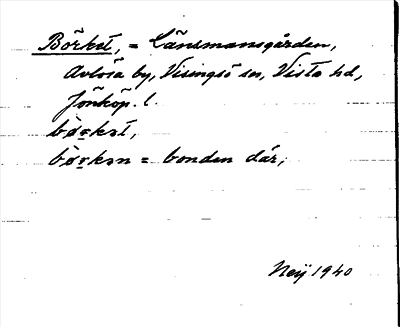 Börket, = Länsmansgården,
Avlösa by, Visingsö sn, Vista hd,
Jönköp. l.
bö̀rkət,
bö̀rkən = bonden där;
Neij 1940